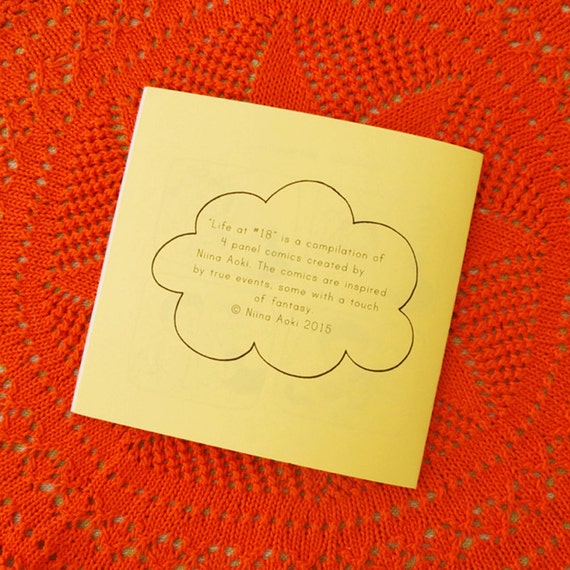 "Life at #18" is a compilation of
4 panel comics created by
Niina Aoki. The comics are inspired
by true events, some with a touch
of fantasy.
© Niina Aoki 2015